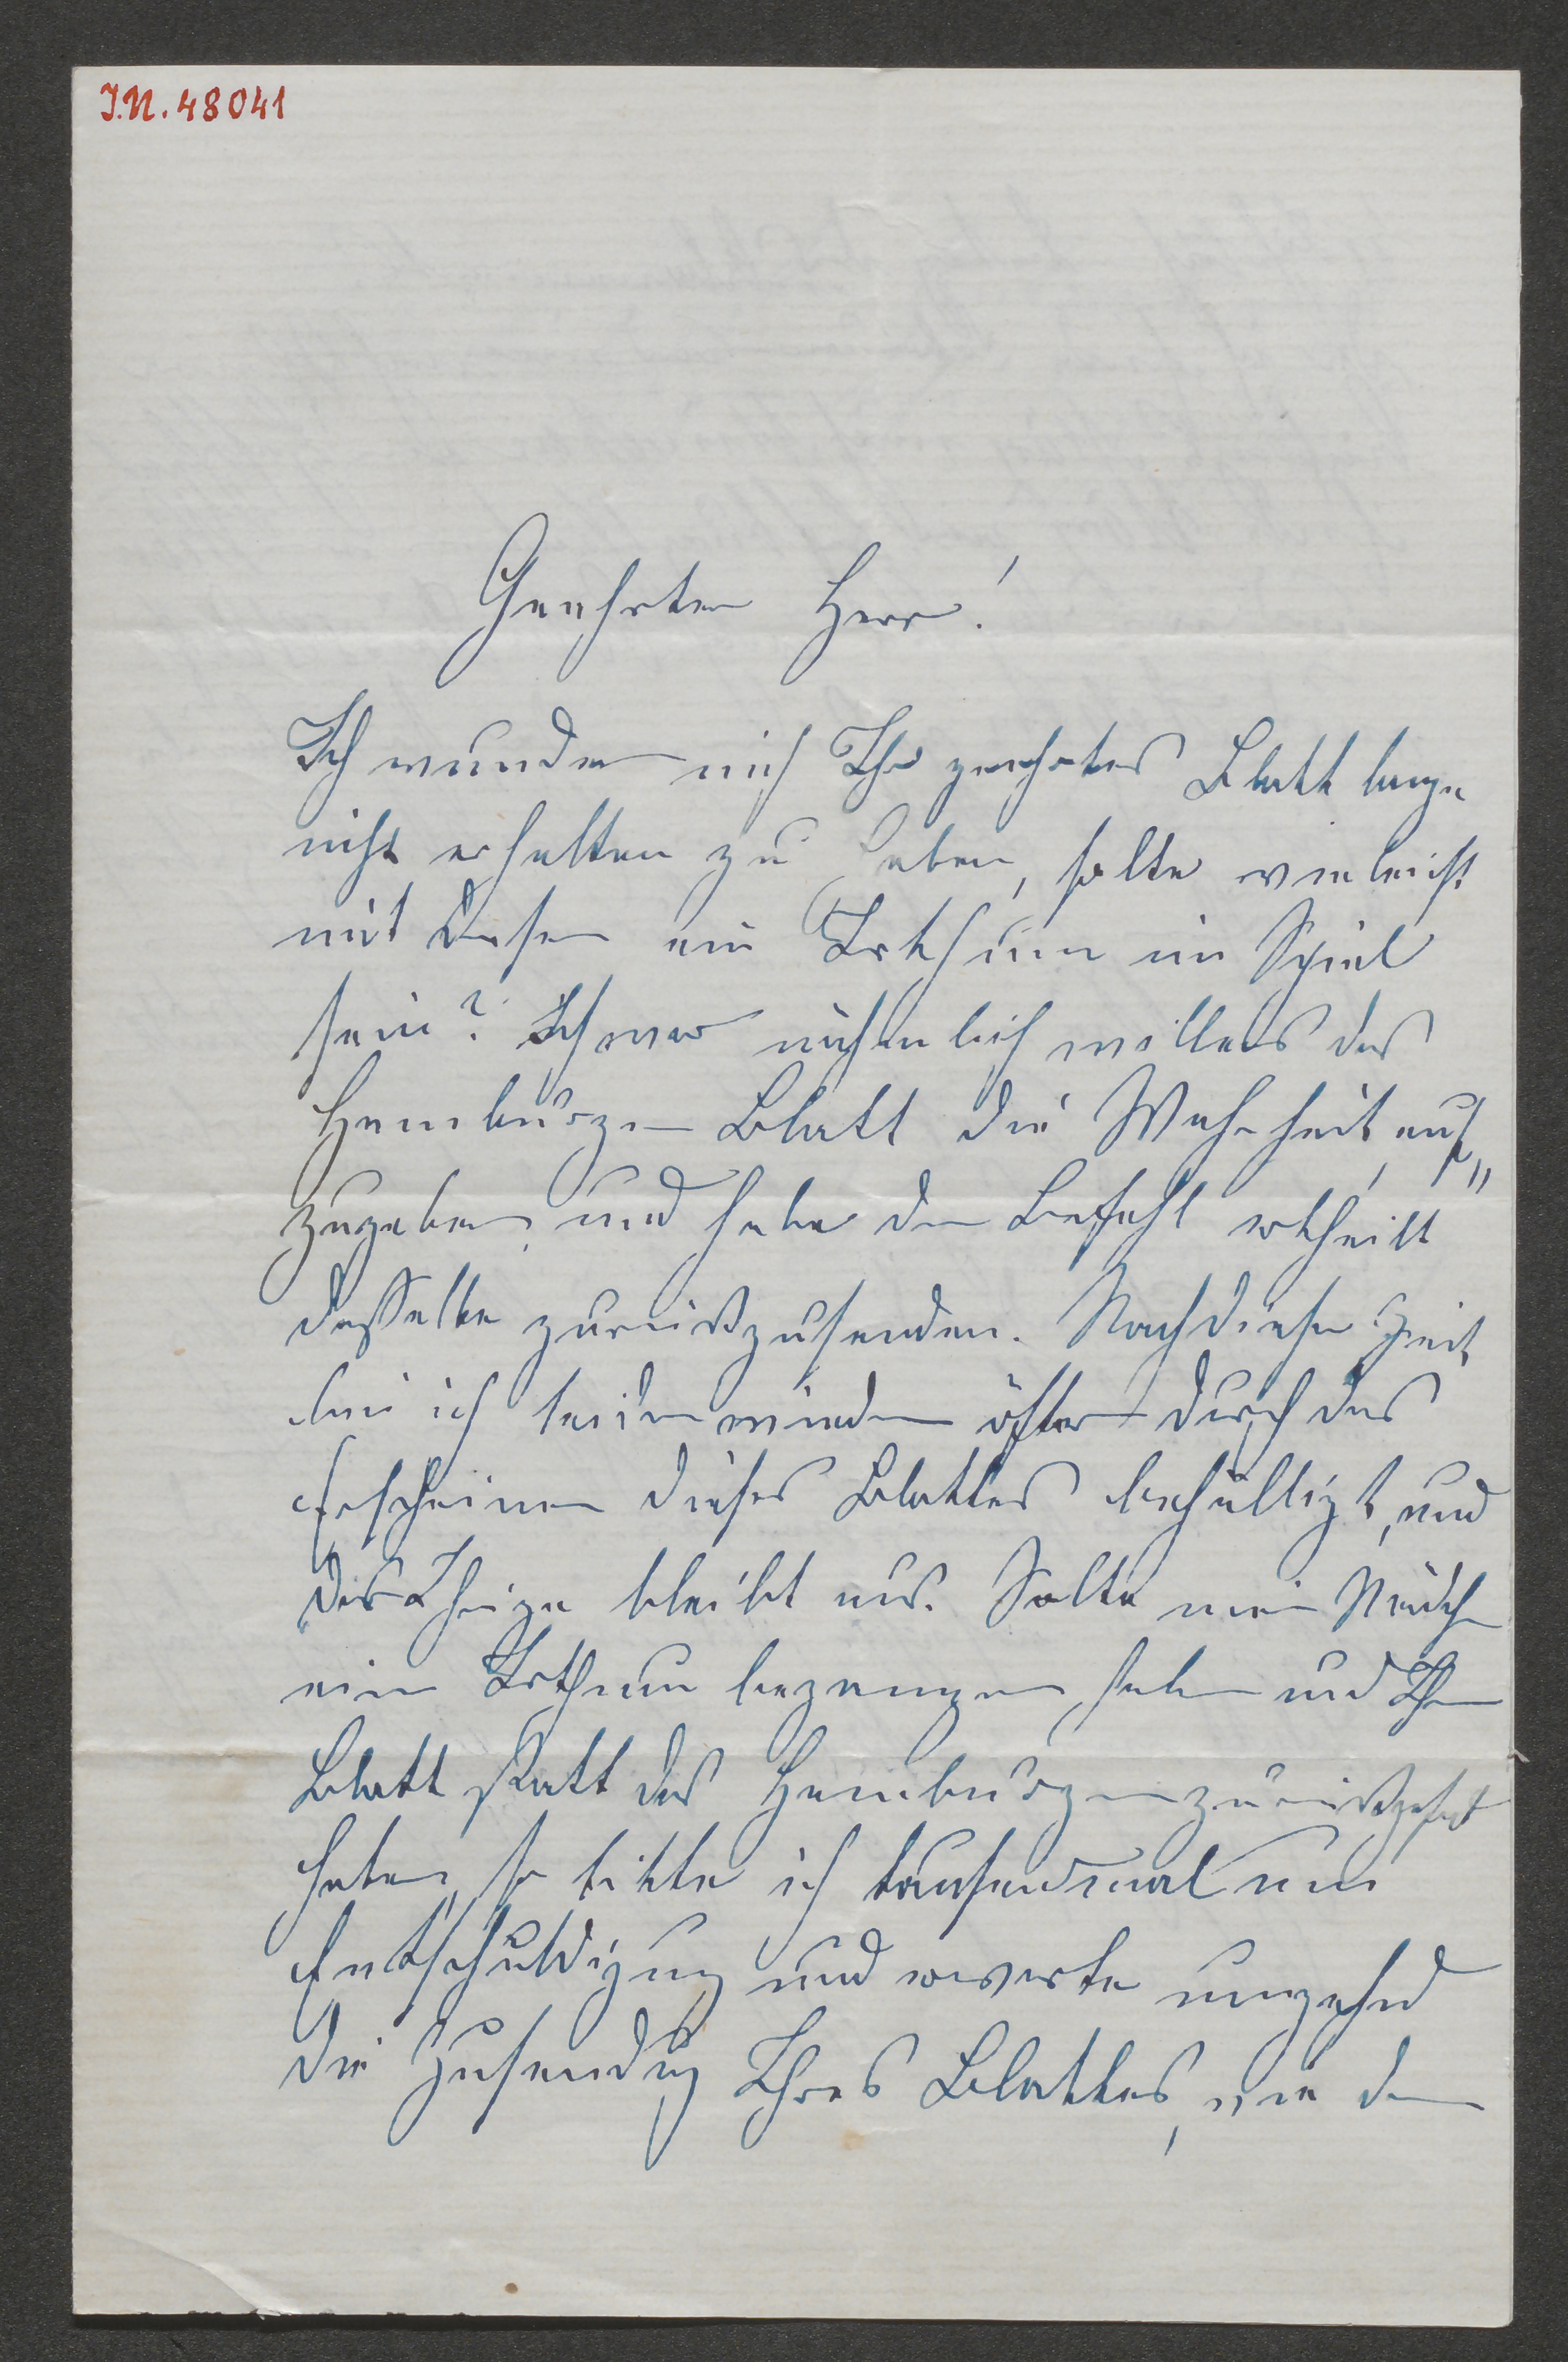 I.N. 48041
Geehrter Herr!
Ich wunder mich Ihr geehrtes Blatt lange
nicht erhalten zu haben, solte vieleicht
mit diesen ein Irthum im Spiel
sein? Ich war nähmlich willens das
Hamburger Blatt die Wahrheit auf„
zugeben, und habe den Befehl ertheilt
dasselbe zurückzusenden. Nach dieser Zeit
bin ich leider wieder öfter durch das
Erscheinen dieses Blattes behälligt, und
das Ihrige bleibt aus. Solte mein Mädchen
einen Irthum begangen haben und Ihr
Blatt statt des Hamburger zurückgesendet
haben, so bitte ich tausendmal um
Entschuldigung und erwarte umgehend
die Zusendung Ihres Blattes, wie den